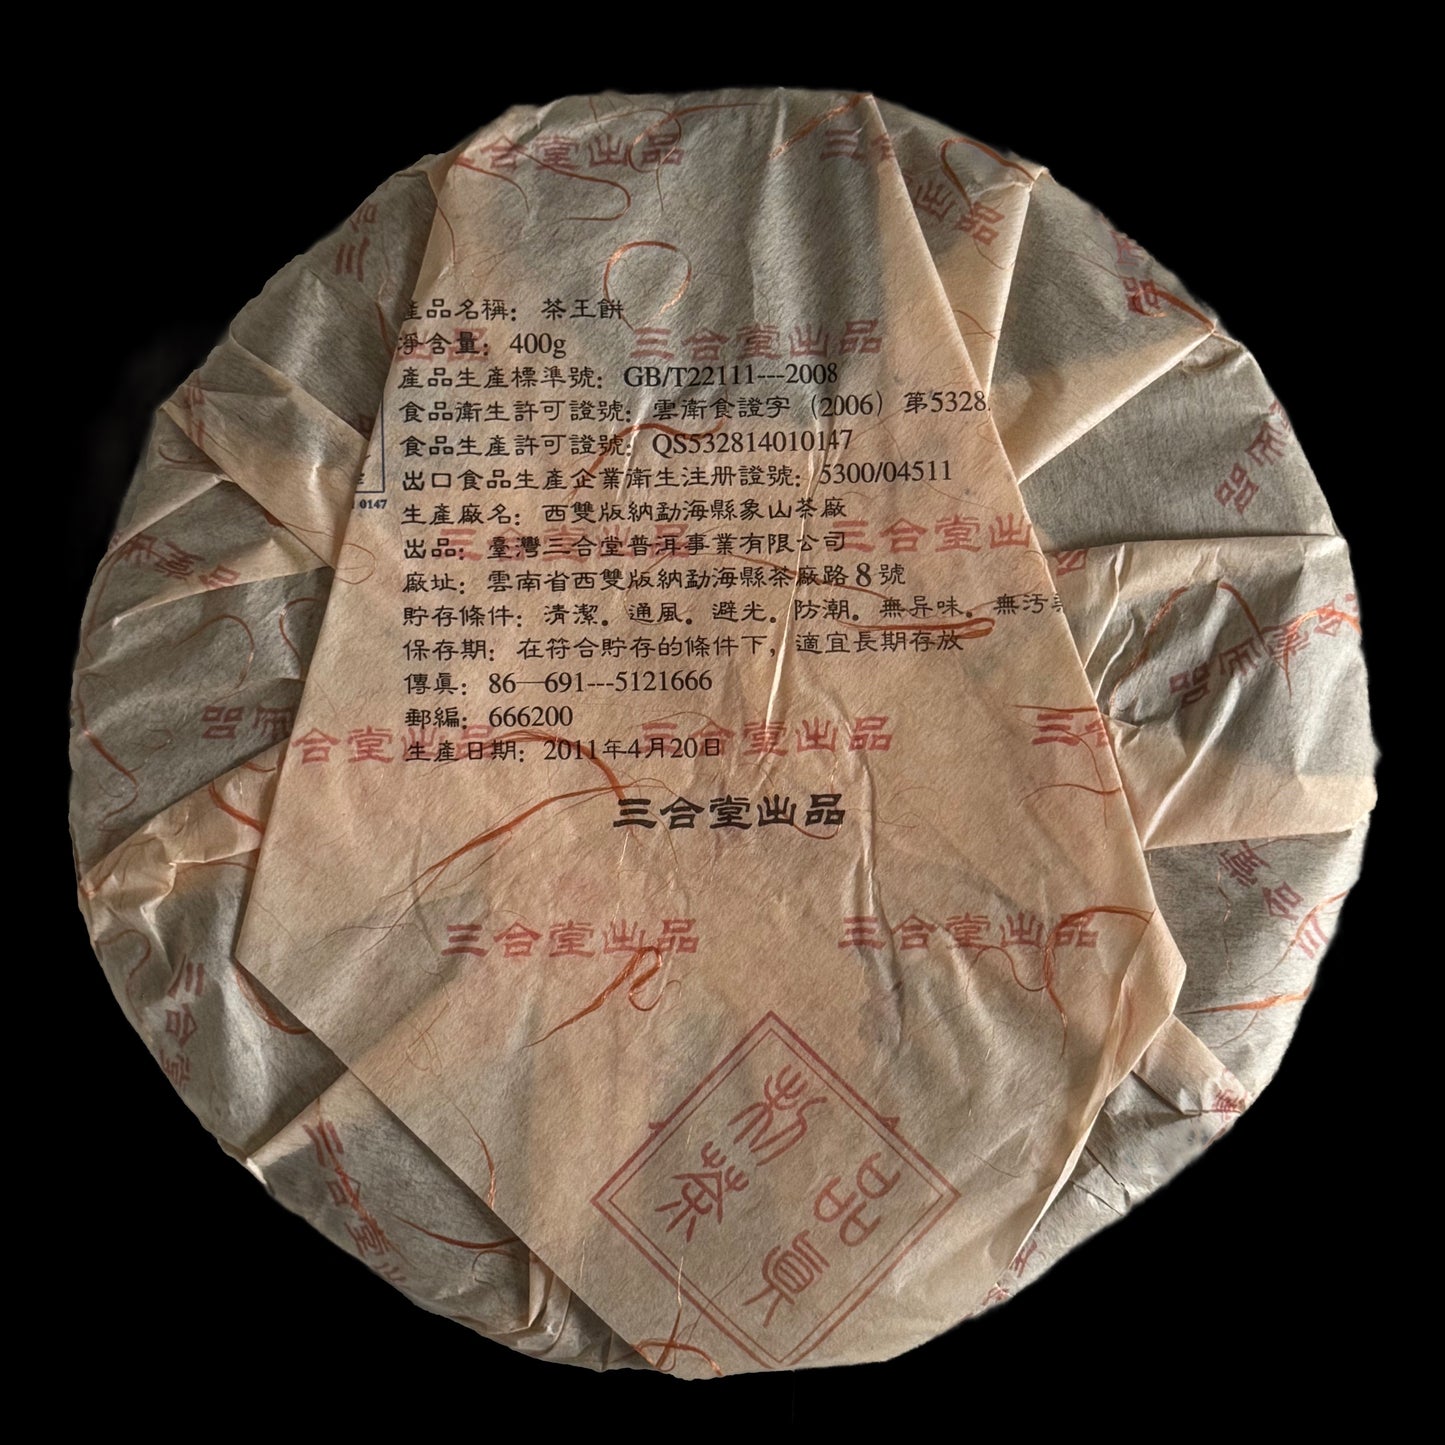 三合堂出品
產品名稱：茶王餅
淨含量：400g
三合堂出品
產品生產標準號：GB/T22111---2008
食品衛生許可證號：雲衛食證字（2006）第5328
食品生產許可證號：QS532814010147
出口食品生產企業衛生注册證號：5300/04511
0147
生產廠名：西雙版納勐海縣象山茶廠
三合堂出
出品：臺灣三合堂普洱事業有限公司
廠址：雲南省西雙版納勐海縣茶廠路8號
貯存條件：清潔。通風。避光。防潮。無异味。無汚
保存期：在符合貯存的條件下，適宜長期存放
傳真：86—691---5121666
郵編：666200
合堂出品 三合堂出品
生產日期：2011年4月20日
三合堂出品
三合堂出品 三合堂出品